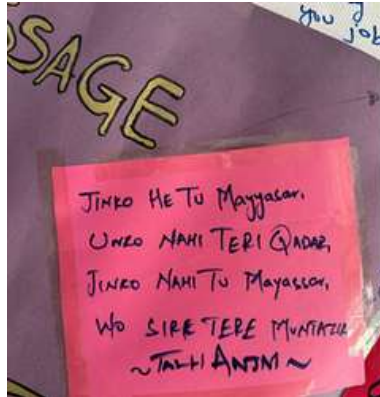 you g
job
SSAGE
JINKO HE TU Mayyasar,
UNKO NAHI TERI QADAR,
JINKO NAHI TU Mayassar,
WO SIRF TERE MUNTAZIR
~TALHANJM~